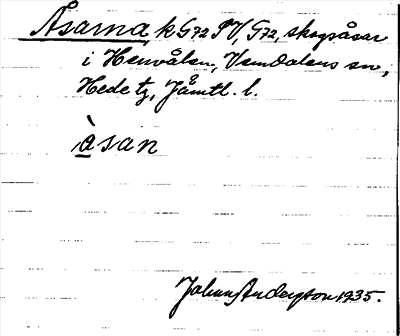 Åsarna, k G72 SV, G72, skogsåsar
i Henvålen, Vemdalens sn,
Hede tg, Jämtl. l.
åsan
Johan Anderzson 1935.